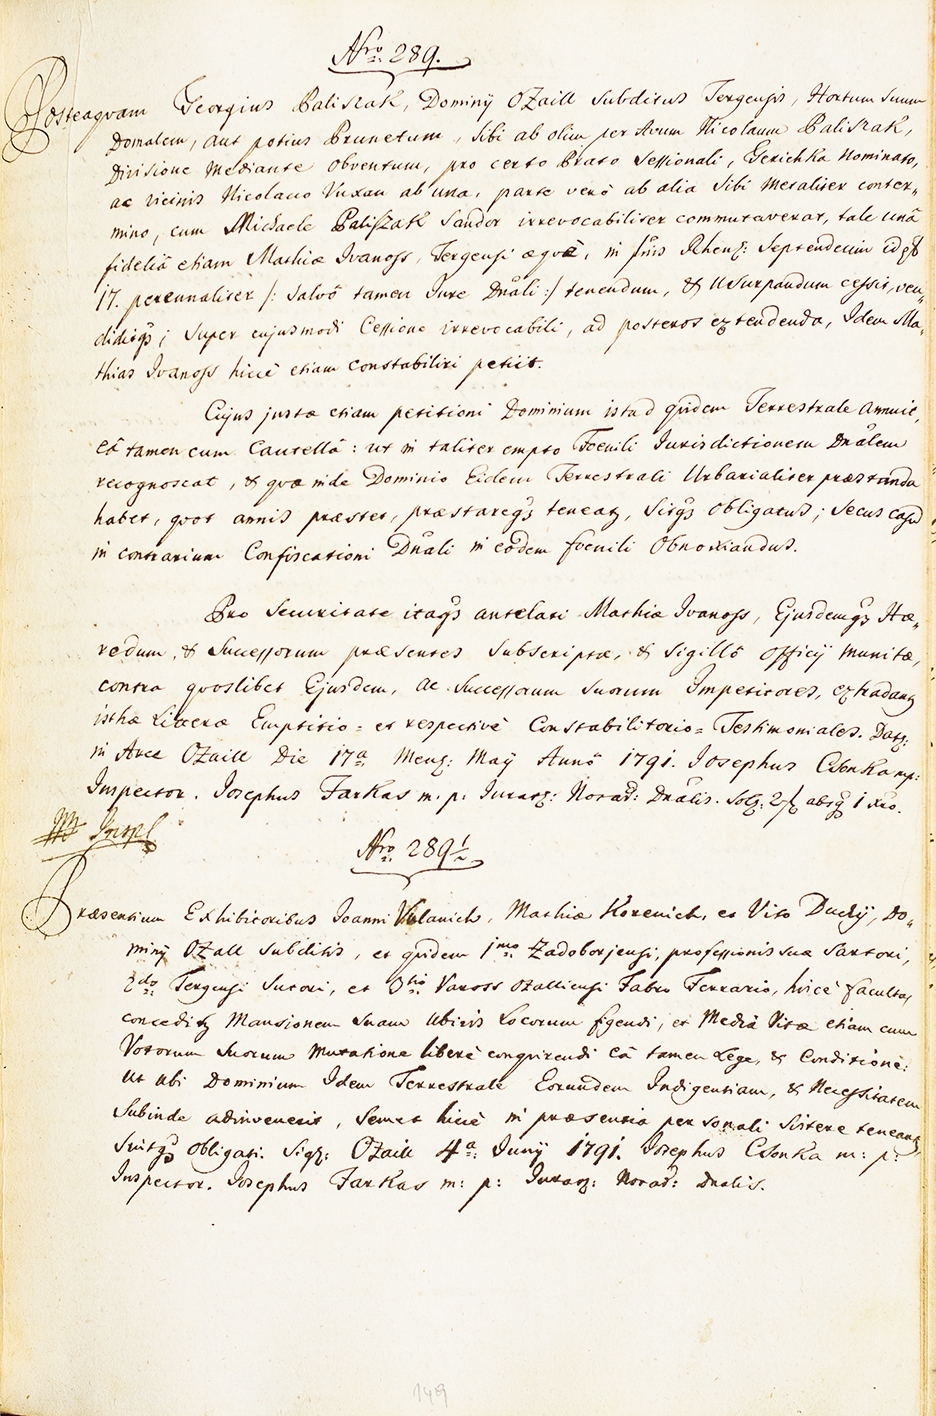 Nro. 289.
Posteaquam Georgius Paliszak, Dominÿ Ozaill subditus Tergensis, Hortum suum
Domalem, aut potius Prunetum, sibi ab olim per Avum Nicolaum Paliszak,
Divisione mediante obventum, pro certo Prato sessionali, Gerichka nominato,
ac vicinis Nicolaus Vuxan ab una, parte verò ab alia sibi metaliter conter„
mino, cum Michaele Paliszak Sandor irrevocabiliter commutaverat, tale unâ
fideliâ etiam Mathiæ Ivanoss, Tergensi æquè, in fnis Rhens: Septendecim id est
17. perennaliter /: salvô tamen Jure Dnali :/ tenendum, & Usurpandum cessit, ven„
diditqs; super cujusmodi Cessione irrevocabili, ad posteros extendenda, Idem Ma„
thias Ivanoss hicce etiam constabiliri petiit.
Cujus justæ etiam petitioni Dominium istud quidem Terrestrale annuit,
eâ tamen cum Cautellâ: ut in taliter empto Foenili Jurisdictionem Dnalem
recognoscat, & quæ inde Dominio Eidem Terrestrali Urbarialiter præstanda
habet, quot annis præstet, præstareqs teneatr, sitqs obligatus; secus casu
in contrarium Confiscationi Dnali in eodem foenili obnoxiandus.
Pro Securitate itaqs antelati Mathiæ Ivanoss, Ejusdemqs Hæ„
redum, & Successorum præsentes subscriptæ, & sigillô officÿ munitæ,
contra quoslibet Ejusdem, ac Successorum suorum Impetitores, extradantr
isthæ Literæ Emptitio= et respectivè Constabilitorio= Testimoniales. Dats:
in Arce Ozaill Die 17a Mens: Maÿ Annô 1791. Josephus Csonka mp:
Inspector. Josephus Farkas m. p: Jurats: Notar: Dnalis. Sols: 2 f absqs 1 xro.
Nro. 289½
Præsentium Exhibitoribus Joanni Vulavich, Mathiæ Korenich, et Vito Duckÿ, Do„
minÿ Ozall subditis, et quidem 1mo Zadoborjensi, professionis suæ Sartori,
2do Tergensi Sutori, et 3tio Vaross Ozalliensi Fabro Ferrario, hicce facultas
conceditr Mansionem suam ubivis Locorum figendi, et Mediâ Vitæ etiam cum
Votorum suorum mutatione liberè conquirendi eâ tamen Lege, & Conditione:
Ut ubi Dominium Idem Terrestrale Eorundem Indigentiam, & Necessitatem
subinde adinvenerit, semet hicce in præsentia personali sistere teneantr,
sintqs obligati. Sigs: Ozaill 4a Junÿ 1791. Josephus Csonka m: p:
Inspector. Josephus Farkas m: p: Jurats: Notar: Dnalis.
149